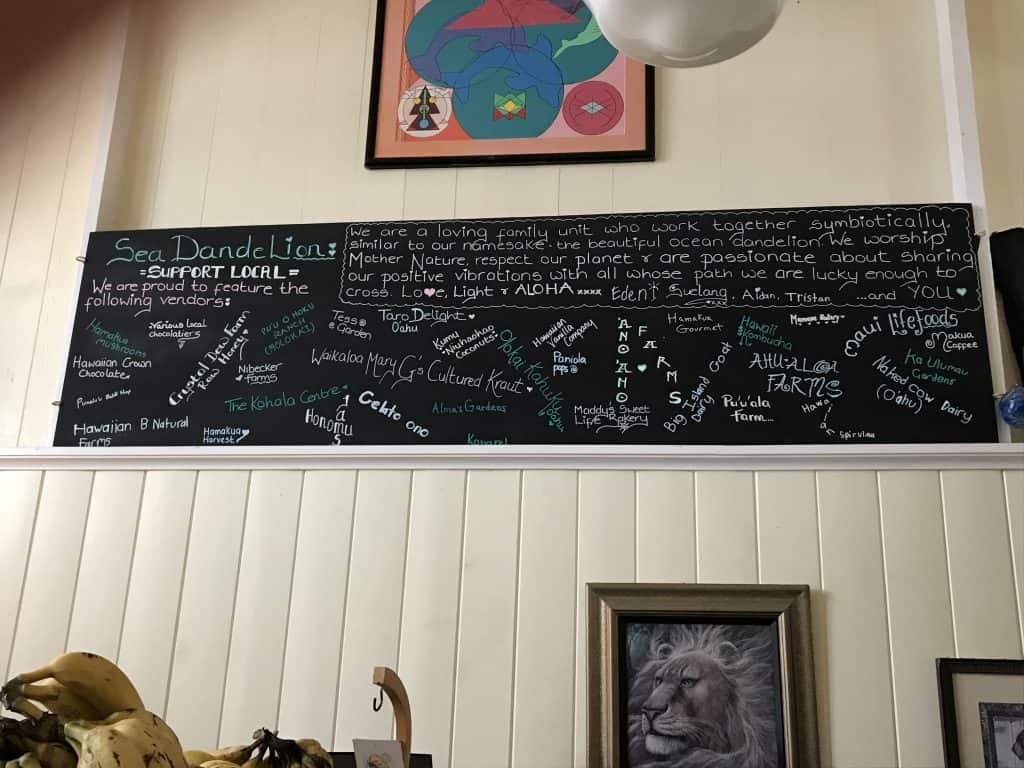 Sea DandeLion
=SUPPORT LOCAL=
We are proud to feature the
following vendors:
We are a loving family unit who work together symbiotically.
similar to our namesake - the beautiful ocean dandelion. We worship
Mother Nature, respect our planet & are passionate about sharing
our positive vibrations with all whose path we are lucky enough to
cross. Love, Light & ALOHA xxxx Eden Suelang, Aidan, Tristan ...and YOU
Hamakua
mushrooms
various local
chocolatiers
Hawaiian Crown
Chocolate
Hawaiian B Natural
Farms
Crystal Dew Farm
Raw Honey
PU'U O HOKU
RANCH
(MOLOKAI)
Nibecker
farms
The Kohala Centre
Hamakua
Harvest
Tess
@ Garden
Taro Delight
Oahu
Waikaloa Mary G's Cultured Kraut
Honomu
Gelato ono
Kumu
Niuhaohao
Coconuts
Alma's Gardens
Hawaiian
Vanilla
Company
Paniola
pops
Maddy's Sweet
Life Bakery
ANO ANO
FARMS
Hamakua
Gourmet
Big Island Goat
Dairy
Hawaii
Kombucha
Pu'u'ala
Farm...
AHUALOA
FARMS
Hawaiian
Spirulina
Maui Lifefoods
Makua
Coffee
Ka Ulumau
Gardens
Naked Cow Dairy
(O'ahu)